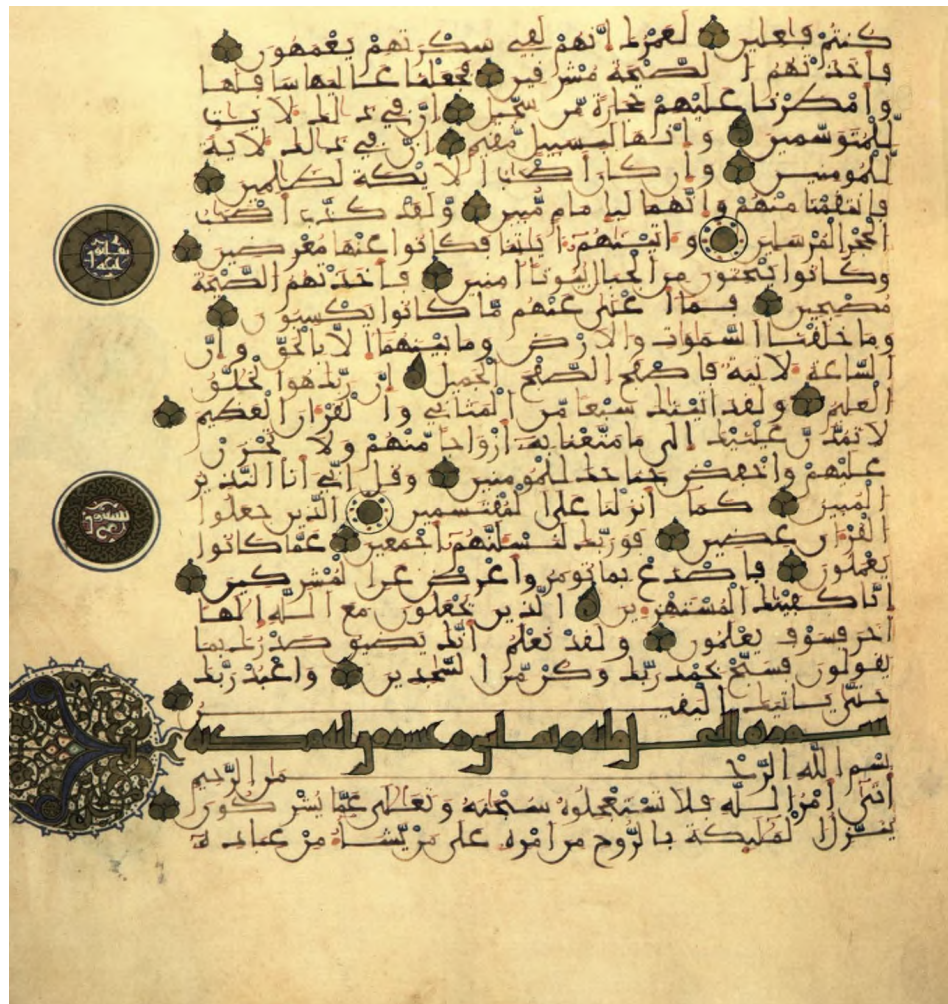 كنتم فعلين لعمرك إنهم لفي سكرتهم يعمهون
فأخذتهم الصيحة مشرقين فجعلنا عاليها سافلها
وأمطرنا عليهم حجارة من سجيل إن في ذلك لأيت
للمتوسمين وإنها لبسبيل مقيم إن في ذلك لأية
للمومنين وإن كان أصحب الأيكة لظلمين
فانتقمنا منهم وإنهما لبإمام مبين ولقد كذب أصحب
الحجر المرسلين واتينهم ايتنا فكانوا عنها معرضين
وكانوا ينحتون من الجبال بيوتا امنين فأخذتهم الصيحة
مصبحين فما أغنى عنهم ما كانوا يكسبون
وما خلقنا السموت والأرض وما بينهما إلا بالحق وإن
الساعة لأتية فاصفح الصفح الجميل إن ربك هو الخلق
العليم ولقد اتينك سبعا من المثاني والقرءان العظيم
لا تمدن عينيك إلى ما متعنا به أزواجا منهم ولا تحزن
عليهم واخفض جناحك للمومنين وقل إني أنا النذير
المبين كما أنزلنا على المقتسمين الذين جعلوا
القرءان عضين فوربك لنسئلنهم أجمعين عما كانوا
يعملون فاصدع بما تومر وأعرض عن المشركين
إنا كفينك المستهزءين الذين يجعلون مع الله إلها
اخر فسوف يعلمون ولقد نعلم أنك يضيق صدرك بما
يقولون فسبح بحمد ربك وكن من السجدين واعبد ربك
حتى ياتيك اليقين
سورة النحل مائة وثماني وعشرون اية مكية
بسم الله الرحمن الرحيم
أتى أمر الله فلا تستعجلوه سبحنه وتعلى عما يشركون
ينزل الملئكة بالروح من أمره على من يشاء من عباده